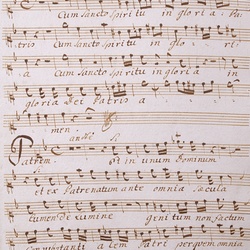 Cum sancto spiritu in gloria Pa
tris Cum sancto spiritu in glo ri
a Cum sancto spiritu in gloria in
gloria Dei Patris a
men.
Patrem. et in unum Dominum
et ex Patre natum ante omnia saecula
lumen de Lumine genitum non factum
alem Patri per quem omnia